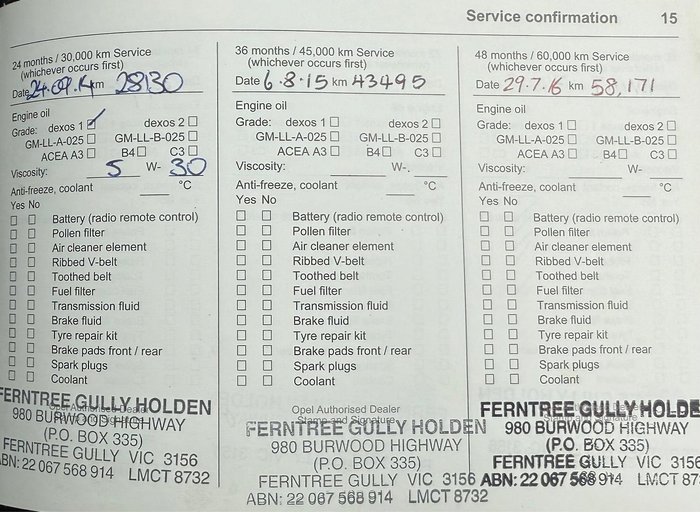 Service confirmation 15
24 months / 30,000 km Service
(whichever occurs first)
Date 24.09.14 km 28130
Engine oil
Grade: dexos 1 dexos 2
GM-LL-A-025 GM-LL-B-025
ACEA A3 B4 C3
Viscosity: 5 W- 30
Anti-freeze, coolant °C
Yes No
Battery (radio remote control)
Pollen filter
Air cleaner element
Ribbed V-belt
Toothed belt
Fuel filter
Transmission fluid
Brake fluid
Tyre repair kit
Brake pads front / rear
Spark plugs
Coolant
Opel Authorised Dealer
FERNTREE GULLY HOLDEN
980 BURWOOD HIGHWAY
(P.O. BOX 335)
FERNTREE GULLY VIC 3156
ABN: 22 067 568 914 LMCT 8732
36 months / 45,000 km Service
(whichever occurs first)
Date 6.8.15 km 43495
Engine oil
Grade: dexos 1 dexos 2
GM-LL-A-025 GM-LL-B-025
ACEA A3 B4 C3
Viscosity: W-
Anti-freeze, coolant °C
Yes No
Battery (radio remote control)
Pollen filter
Air cleaner element
Ribbed V-belt
Toothed belt
Fuel filter
Transmission fluid
Brake fluid
Tyre repair kit
Brake pads front / rear
Spark plugs
Coolant
Opel Authorised Dealer
Stamp and Signature
FERNTREE GULLY HOLDEN
980 BURWOOD HIGHWAY
(P.O. BOX 335)
FERNTREE GULLY VIC 3156
ABN: 22 067 568 914 LMCT 8732
48 months / 60,000 km Service
(whichever occurs first)
Date 29.7.16 km 58,171
Engine oil
Grade: dexos 1 dexos 2
GM-LL-A-025 GM-LL-B-025
ACEA A3 B4 C3
Viscosity: W-
Anti-freeze, coolant °C
Yes No
Battery (radio remote control)
Pollen filter
Air cleaner element
Ribbed V-belt
Toothed belt
Fuel filter
Transmission fluid
Brake fluid
Tyre repair kit
Brake pads front / rear
Spark plugs
Coolant
FERNTREE GULLY HOLDE
980 BURWOOD HIGHWAY
(P.O. BOX 335)
FERNTREE GULLY VIC 3156
ABN: 22 067 568 914 LMCT 87